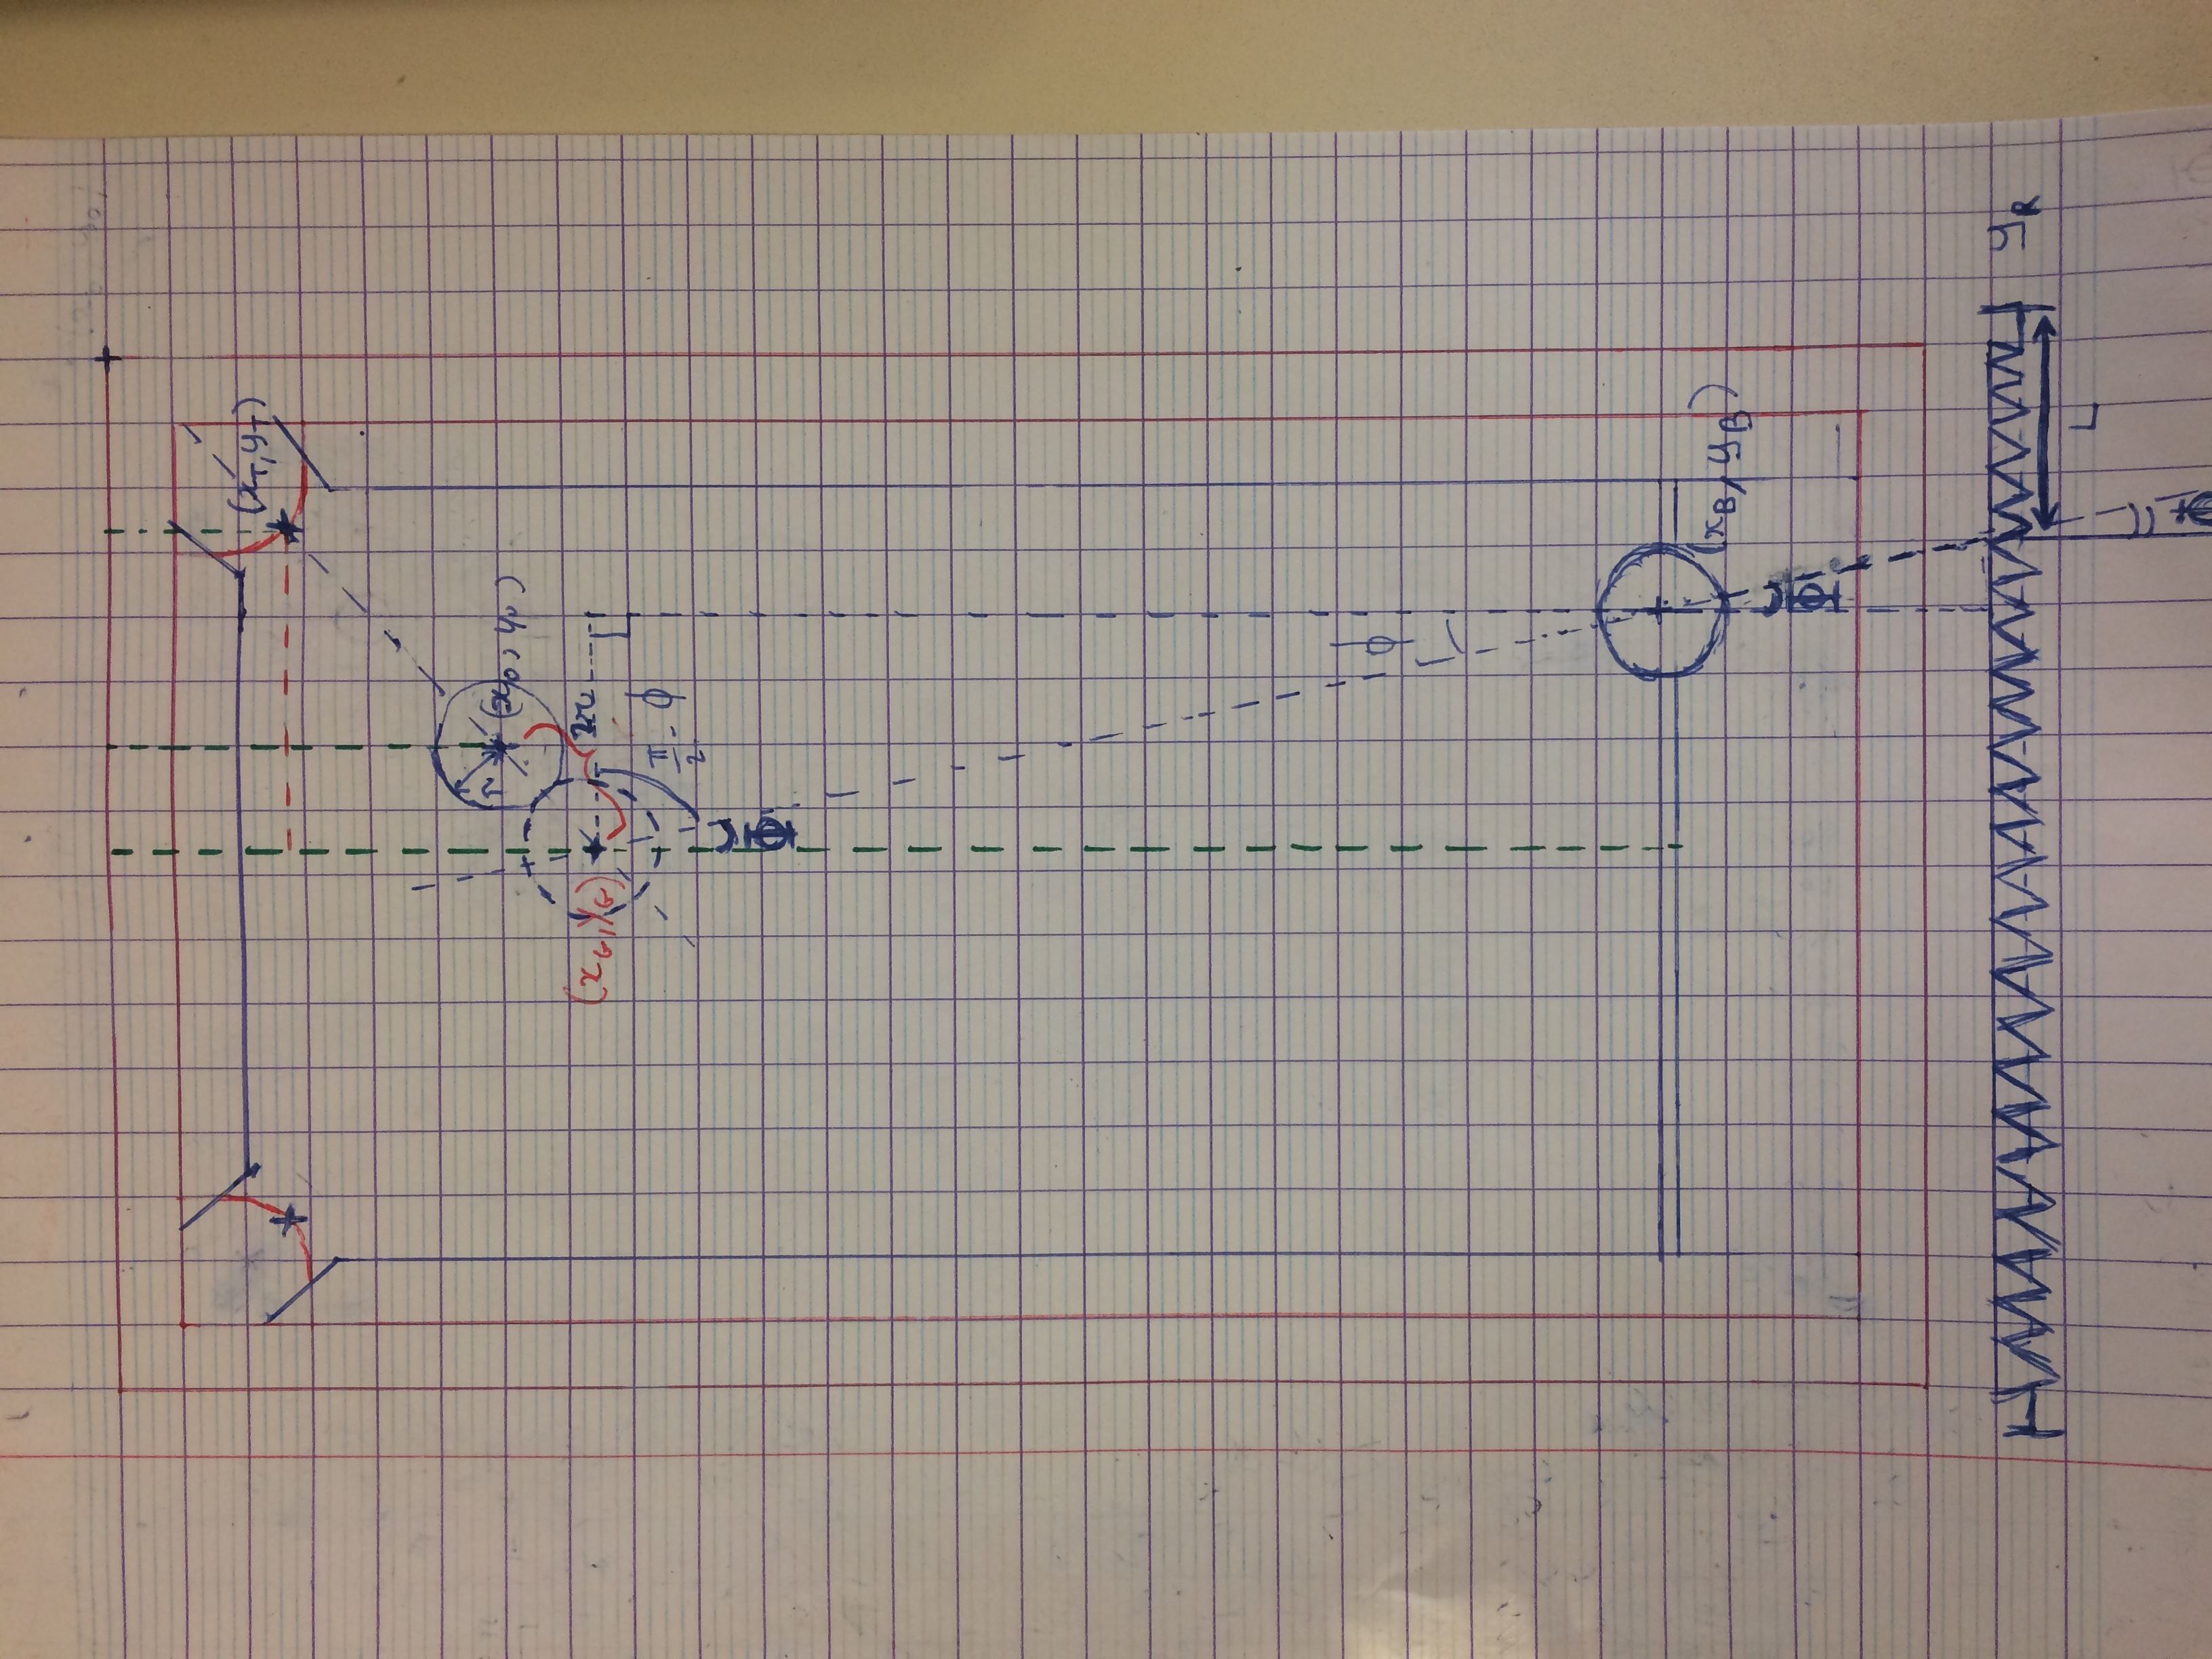 (x_T, y_T)
r
(x_0, y_0)
(x_G, y_G)
2r
π/2 - ϕ
ϕ
(x_B, y_B)
y_R
L